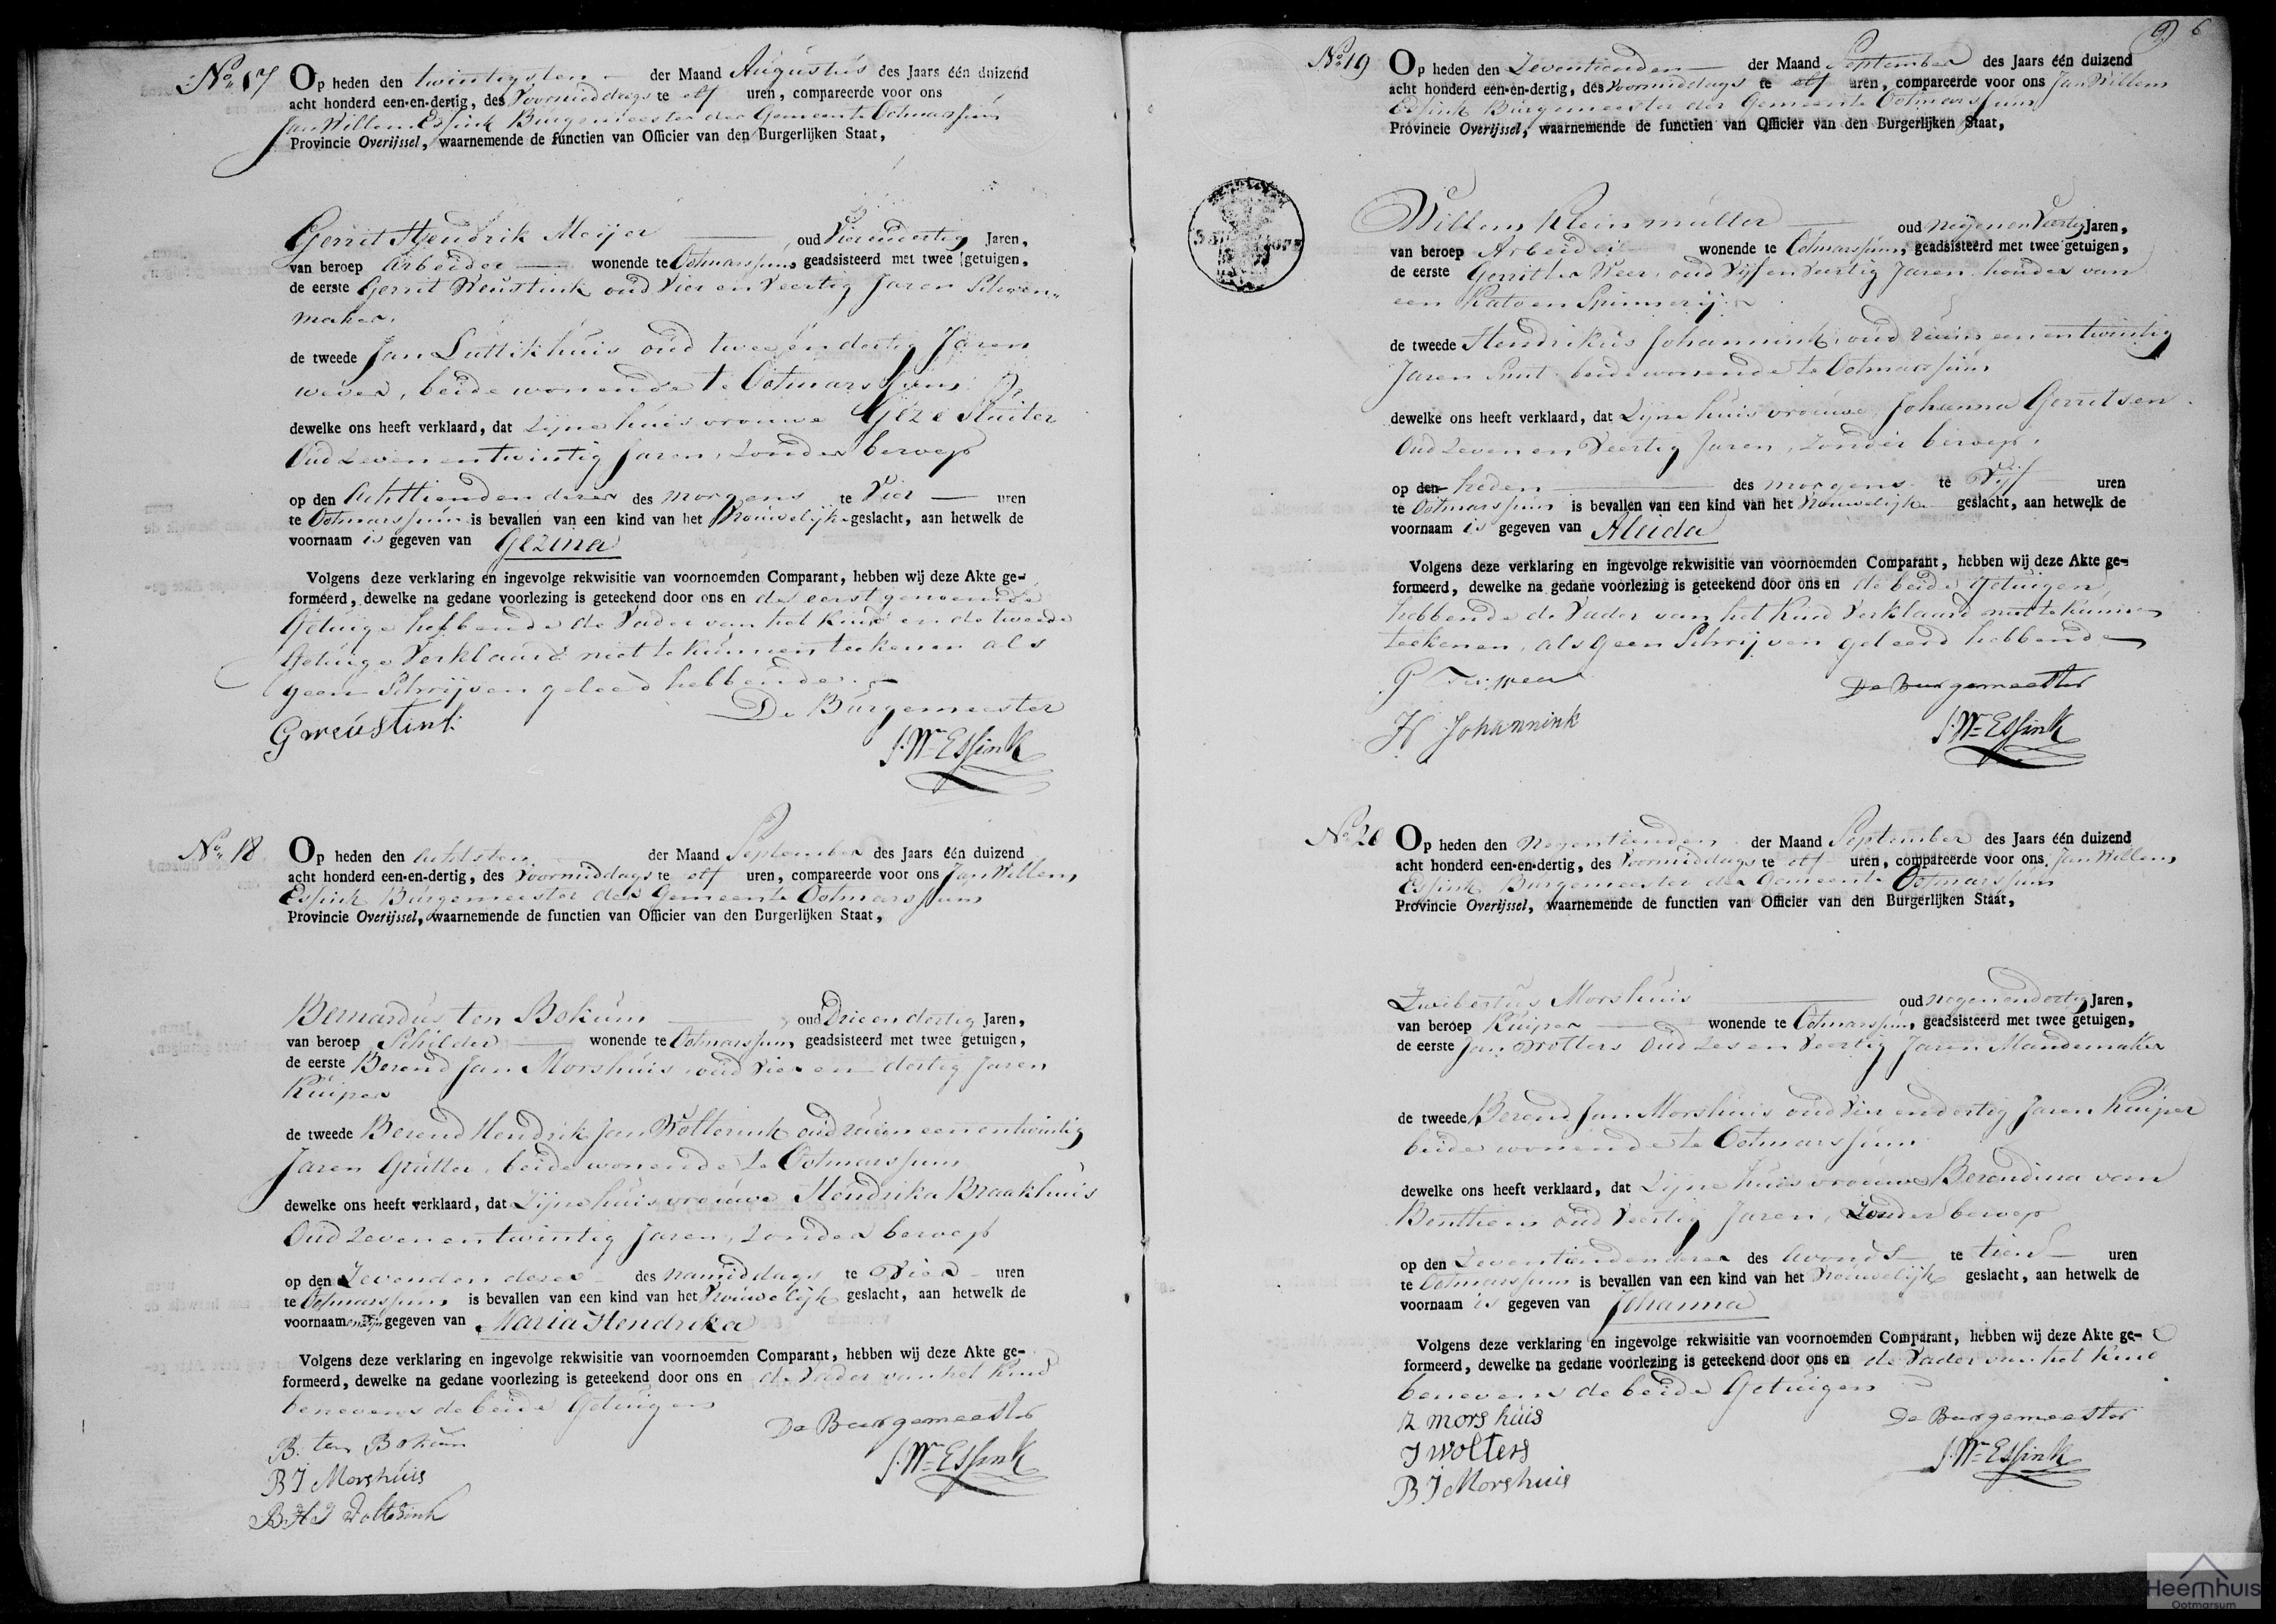 No. 17 Op heden den twintigsten der Maand Augustus des Jaars één duizend
acht honderd een-en-dertig, des Voormiddags te elf uren, compareerde voor ons
Jan Willem Essink Burgemeester der Gemeente Ootmarssum
Provincie Overijssel, waarnemende de functien van Officier van den Burgerlijken Staat,
Gerrit Hendrik Meijer oud Vierendertig Jaren,
van beroep Arbeider wonende te Ootmarssum, geadsisteerd met twee getuigen,
de eerste Gerrit Weustink oud Vier en Veertig Jaren Schoen„
maker,
de tweede Jan Luttikhuis oud twee en dertig Jaren
wever, beide wonende te Ootmarssum
dewelke ons heeft verklaard, dat Zijne huisvrouwe Geze Sluiter
Oud Zeven en twintig Jaren, Zonder beroep
op den Achttienden dezer des morgens te Vier uren
te Ootmarssum is bevallen van een kind van het Vrouwelijk geslacht, aan hetwelk de
voornaam is gegeven van Gezina
Volgens deze verklaring en ingevolge rekwisitie van voornoemden Comparant, hebben wij deze Akte ge-
formeerd, dewelke na gedane voorlezing is geteekend door ons en de eerstgenoemde
Getuige hebbende de Vader van het Kind en de tweede
Getuige Verklaard niet te kunnen teekenen als
geen Schrijven geleerd hebbende.
De Burgemeester
G weustink
J. Wm Essink
No. 18 Op heden den Achtsten der Maand September des Jaars één duizend
acht honderd een-en-dertig, des Voormiddags te elf uren, compareerde voor ons Jan Willem
Essink Burgemeester der Gemeente Ootmarssum
Provincie Overijssel, waarnemende de functien van Officier van den Burgerlijken Staat,
Bernardus ten Bokum oud Drie en dertig Jaren,
van beroep Schilder wonende te Ootmarssum, geadsisteerd met twee getuigen,
de eerste Berend Jan Morshuis, oud Vier en dertig Jaren
Kuiper
de tweede Berend Hendrik Jan Wolterink oud ruim een en twintig
Jaren Grutter, beide wonende te Ootmarssum
dewelke ons heeft verklaard, dat Zijne huisvrouwe Hendrika Braakhuis
Oud Zeven en twintig Jaren, Zonder beroep
op den Zevenden dezer des namiddags te Vier uren
te Ootmarssum is bevallen van een kind van het Vrouwelijk geslacht, aan hetwelk de
voornaam gegeven van Maria Hendrika
Volgens deze verklaring en ingevolge rekwisitie van voornoemden Comparant, hebben wij deze Akte ge-
formeerd, dewelke na gedane voorlezing is geteekend door ons en de Vader van het Kind
benevens de beide Getuigen
De Burgemeester
B. ten Bokum
J. Wm Essink
B J Morshuis
B. H J Wolterink
9 6
No. 19 Op heden den Zeventienden der Maand September des Jaars één duizend
acht honderd een-en-dertig, des Voormiddags te elf uren, compareerde voor ons Jan Willem
Essink Burgemeester der Gemeente Ootmarssum
Provincie Overijssel, waarnemende de functien van Officier van den Burgerlijken Staat,
Willem Kleinmuller oud Negen en Veertig Jaren,
van beroep Arbeider wonende te Ootmarssum, geadsisteerd met twee getuigen,
de eerste Gerrit ter Weer, oud Vijf en Veertig Jaren, houder van
een Katoen Spinnerij
de tweede Hendrikus Johannink, oud ruim een en twintig
Jaren Smit beide wonende te Ootmarssum
dewelke ons heeft verklaard, dat Zijne huisvrouwe Johanna Gerritsen
Oud Zeven en Veertig Jaren, Zonder beroep,
op den heden des morgens te Vijf uren
te Ootmarssum is bevallen van een kind van het Vrouwelijk geslacht, aan hetwelk de
voornaam is gegeven van Aleida
Volgens deze verklaring en ingevolge rekwisitie van voornoemden Comparant, hebben wij deze Akte ge-
formeerd, dewelke na gedane voorlezing is geteekend door ons en de beide Getuigen,
hebbende de Vader van het Kind Verklaard niet te kunnen
teekenen, als geen Schrijven geleerd hebbende
De Burgemeester
H Johannink
J. Wm Essink
No. 20 Op heden den Negentienden der Maand September des Jaars één duizend
acht honderd een-en-dertig, des Voormiddags te elf uren, compareerde voor ons Jan Willem
Essink Burgemeester der Gemeente Ootmarssum
Provincie Overijssel, waarnemende de functien van Officier van den Burgerlijken Staat,
Zwibertus Morshuis oud negen en dertig Jaren,
van beroep Kuiper wonende te Ootmarssum, geadsisteerd met twee getuigen,
de eerste Jan Wolters Oud Zes en Veertig Jaren Mandemaker
de tweede Berend Jan Morshuis oud Vier en dertig Jaren Kuiper
beide wonende te Ootmarssum
dewelke ons heeft verklaard, dat Zijne huisvrouwe Berendina van
Benthem oud Veertig Jaren, Zonder beroep
op den Zeventienden dezer des Avonds te tien uren
te Ootmarssum is bevallen van een kind van het Vrouwelijk geslacht, aan hetwelk de
voornaam is gegeven van Johanna
Volgens deze verklaring en ingevolge rekwisitie van voornoemden Comparant, hebben wij deze Akte ge-
formeerd, dewelke na gedane voorlezing is geteekend door ons en de Vader van het Kind
benevens de beide Getuigen
Z morshuis
De Burgemeester
J wolters
J. Wm Essink
B J Morshuis
Heemhuis
Ootmarsum